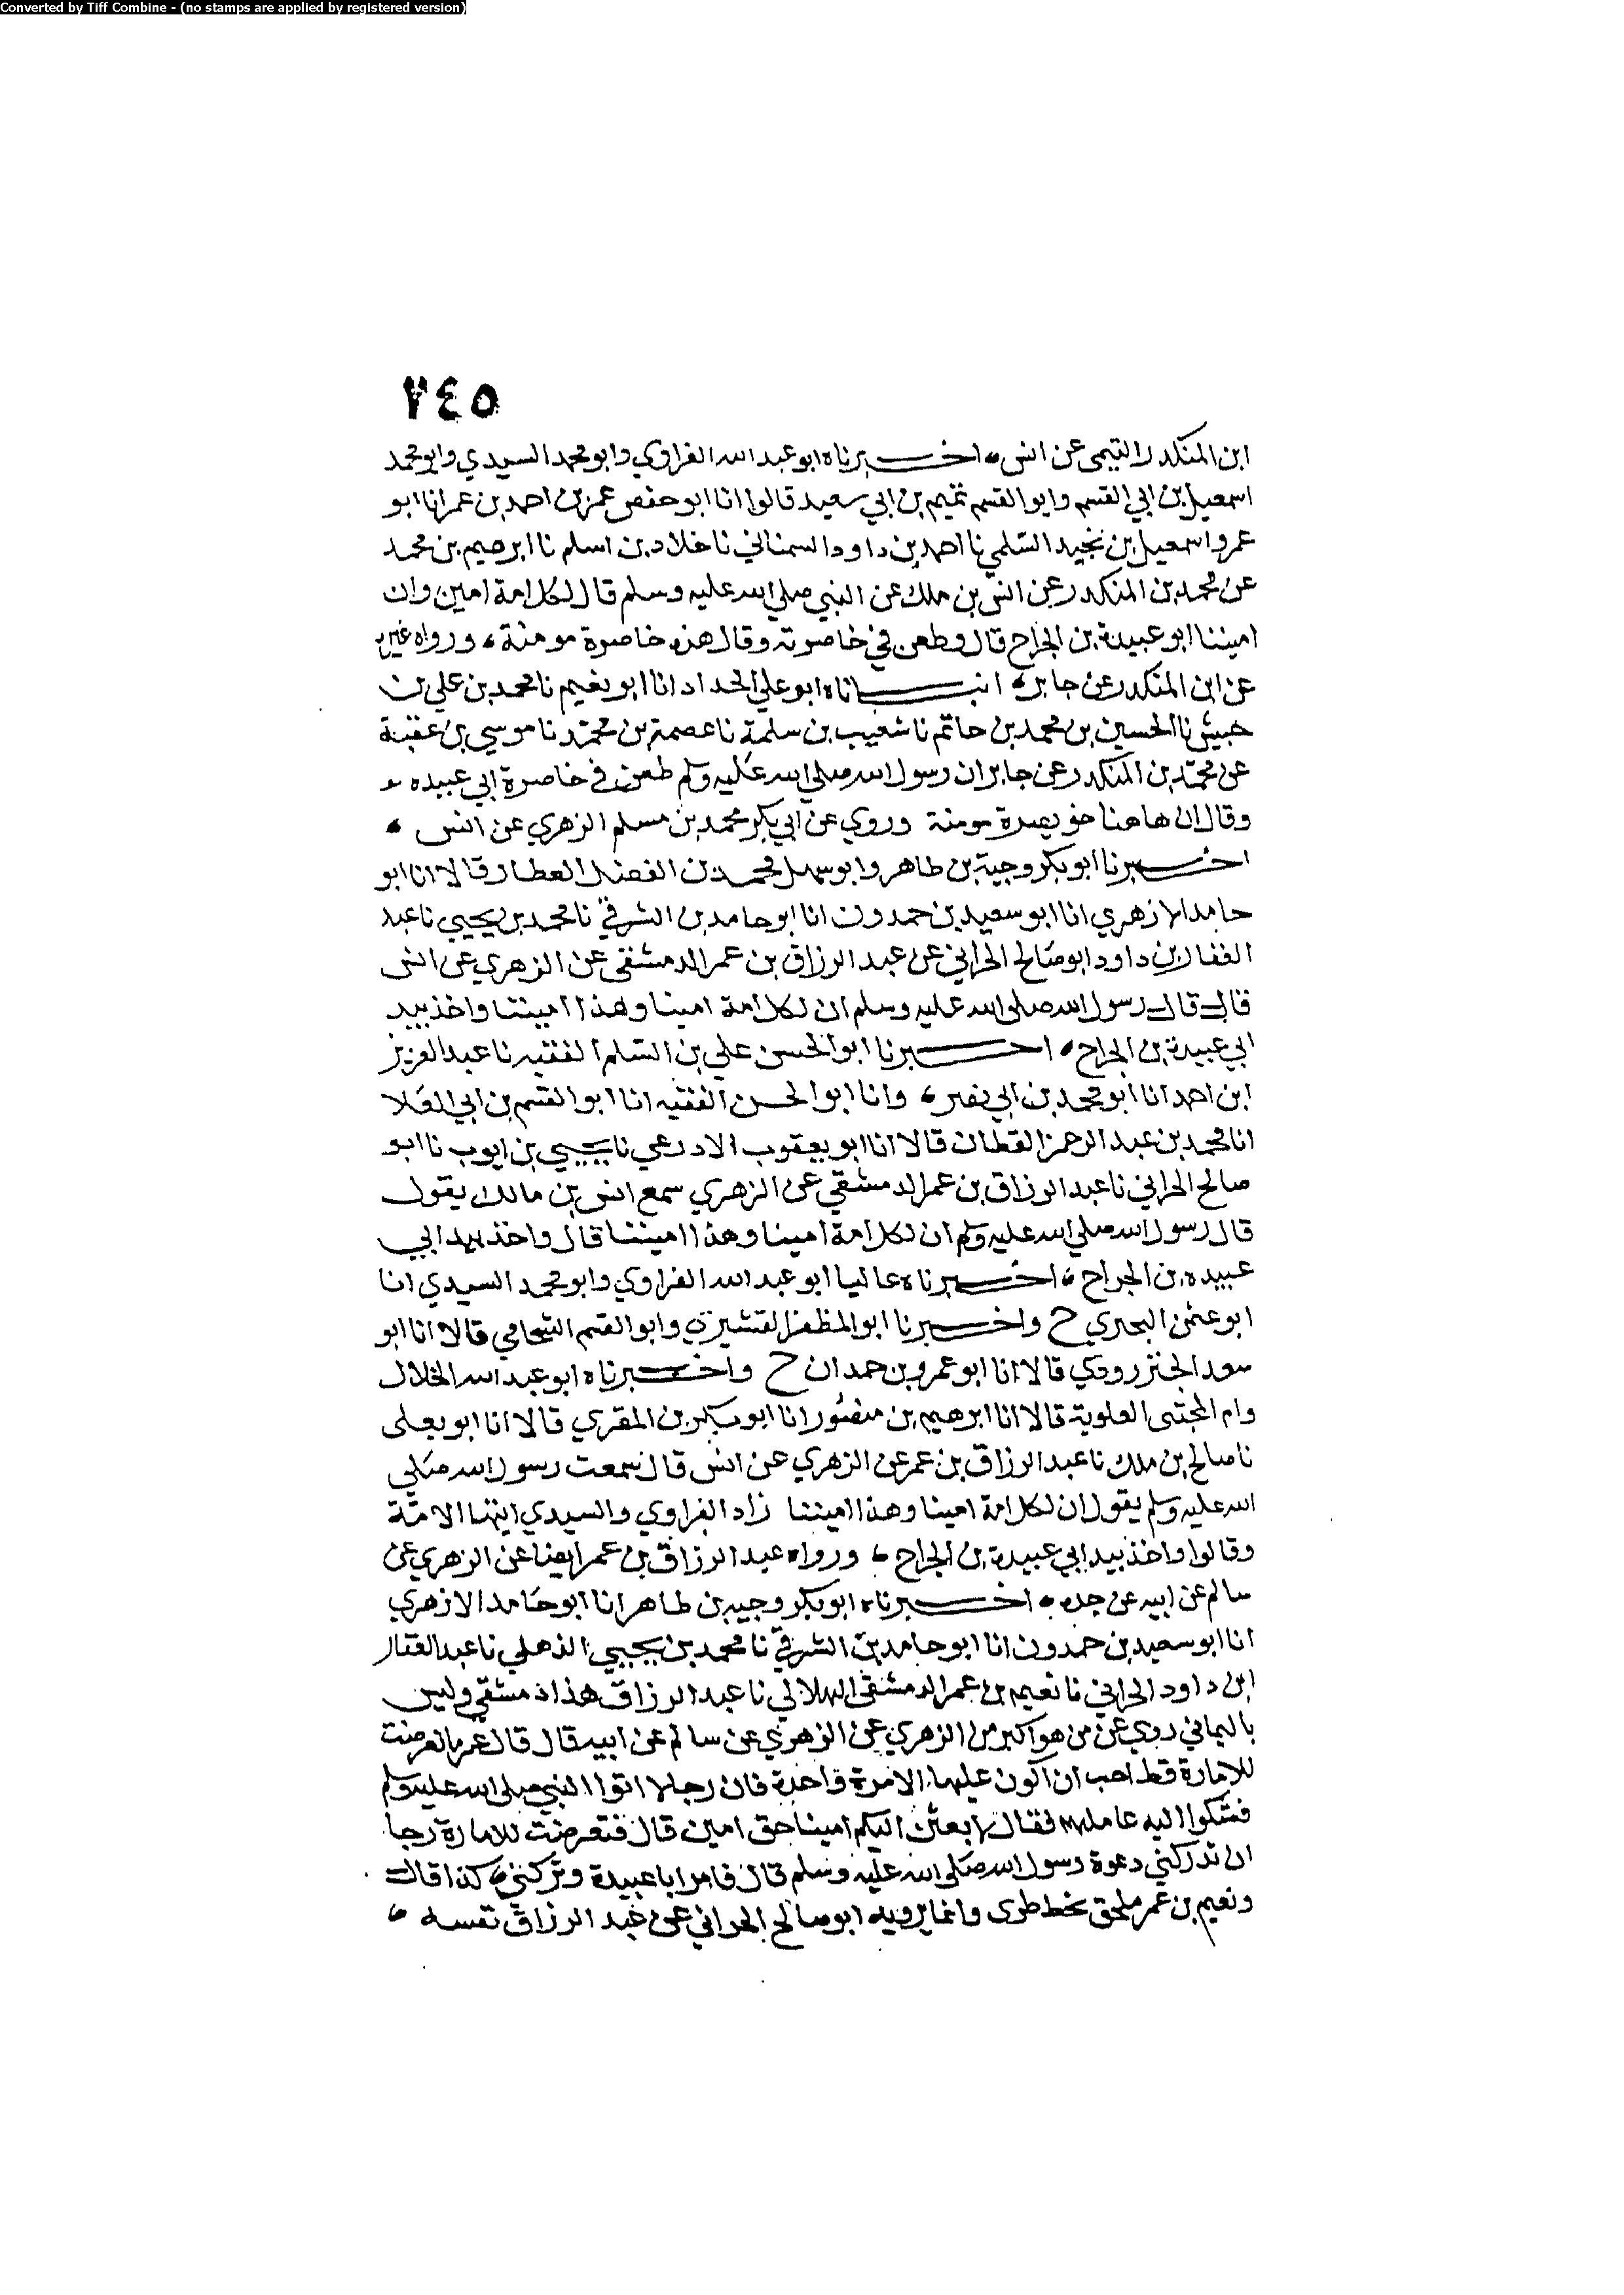 Converted by Tiff Combine - (no stamps are applied by registered version)
٢٤٥
ابن المنكدر التيمى عن انس اخبرناه ابو عبد الله الفراوي وابو محمد السيدي وابو محمد
اسمعيل بن ابي القسم وابو القسم تميم بن ابي سعيد قالوا انا ابو حفص عمر بن احمد بن عمر انا ابو
عمرو اسمعيل بن نجيد السلمي نا احمد بن داود السمناني نا خلاد بن اسلم نا ابرهيم بن محمد
عن محمد بن المنكدر عن انس بن ملك عن النبي صلي الله عليه وسلم قال لكل امة امين وان
اميننا ابو عبيدة بن الجراح قال وطعن في خاصرته وقال هذه خاصرة مومنة ورواه غيره
عن ابن المنكدر عن جابر انبـاناه ابو علي الحداد انا ابو نعيم نا محمد بن علي بن
حبيش نا الحسين بن محمد بن حاتم نا شعيب بن سلمة نا عصمة بن محمد نا موسي بن عقبة
عن محمد بن المنكدر عن جابر ان رسول الله صلي الله عليه وسلم طعن في خاصرة ابي عبيده
وقال ان هاهنا خويصرة مومنة وروي عن ابي بكر محمد بن مسلم الزهري عن انس
اخبرنا ابو بكر وجيه بن طاهر وابو سهل محمد بن الفضل العطار قالا انا ابو
حامد الازهري انا ابو سعيد بن حمدون انا ابو حامد بن الشرقي نا محمد بن يحيي نا عبد
الغفار بن داود ابو صالح الحراني عن عبد الرزاق بن عمر الدمشقي عن الزهري عن انس
قال قال رسول الله صلى الله عليه وسلم ان لكل امة امينا وهذا اميننا واخذ بيد
ابي عبيدة بن الجراح اخبرنا ابو الحسن علي بن السلم الفقيه نا عبد العزيز
ابن احمد انا ابو محمد بن ابي نصر وانا ابو الحسن الفقيه انا ابو القسم بن ابي العلا
انا محمد بن عبد الرحمن القطان قالا انا ابو يعقوب الادرعي نا يحيي بن ايوب نا ابو
صالح الحراني نا عبد الرزاق بن عمر الدمشقي عن الزهري سمع انس بن مالك يقول
قال رسول الله صلي الله عليه وسلم ان لكل امة امينا وهذا اميننا قال واخذ بيد ابي
عبيده بن الجراح اخبرناه عاليا ابو عبد الله الفراوي وابو محمد السيدي انا
ابو عثمن البحري ح واخبرنا ابو المظفر القشيري وابو القسم الشحامي قالا انا ابو
سعد الجنزرودي قالا انا ابو عمرو بن حمدان ح واخبرناه ابو عبد الله الخلال
وام المجتبى العلوية قالا انا ابرهيم بن منصور انا ابو بكر بن المقري قالا انا ابو يعلى
نا صالح بن ملك نا عبد الرزاق بن عمر عن الزهري عن انس قال سمعت رسول الله صلي
الله عليه وسلم يقول ان لكل امة امينا وهذا اميننا زاد الفراوي والسيدي ايتها الامة
وقالوا واخذ بيد ابي عبيدة بن الجراح ورواه عبد الرزاق بن عمر ايضا عن الزهري عن
سالم عن ابيه عن جده اخبرناه ابو بكر وجيه بن طاهر انا ابو حامد الازهري
انا ابو سعيد بن حمدون انا ابو حامد بن الشرقي نا محمد بن يحيي الذهلي نا عبد الغفار
ابن داود الحراني نا نعيم بن عمر الدمشقي الهلالي نا عبد الرزاق هذا دمشقي وليس
باليماني روي عن من هو اكبر من الزهري عن الزهري عن سالم عن ابيه قال قال عمر ما تعرضت
للامارة قط احب ان اكون عليها الا مرة واحدة فان رجالا اتوا النبي صلى الله عليه وسلم
فشكوا اليه عاملهم فقال لابعثن اليكم امينا حق امين قال فتعرضت للامارة رجا
ان تدركني دعوة رسول الله صلى الله عليه وسلم قال فامر ابا عبيدة وتركني كذا قال
ونعيم بن عمر ملحق بخط طرى وانما يرويه ابو صالح الحراني عن عبد الرزاق نفسه